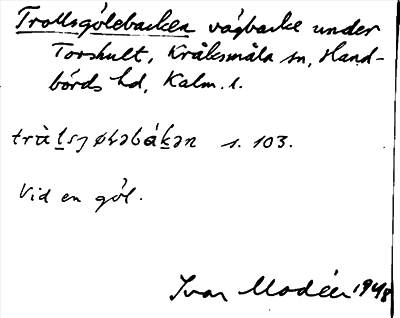 Trollsgölebacken vägbacke under
Torshult, Kråksmåla sn, Hand-
börds hd, Kalm. l.
s. 103.
Vid en göl.
Ivar Modéer 1948